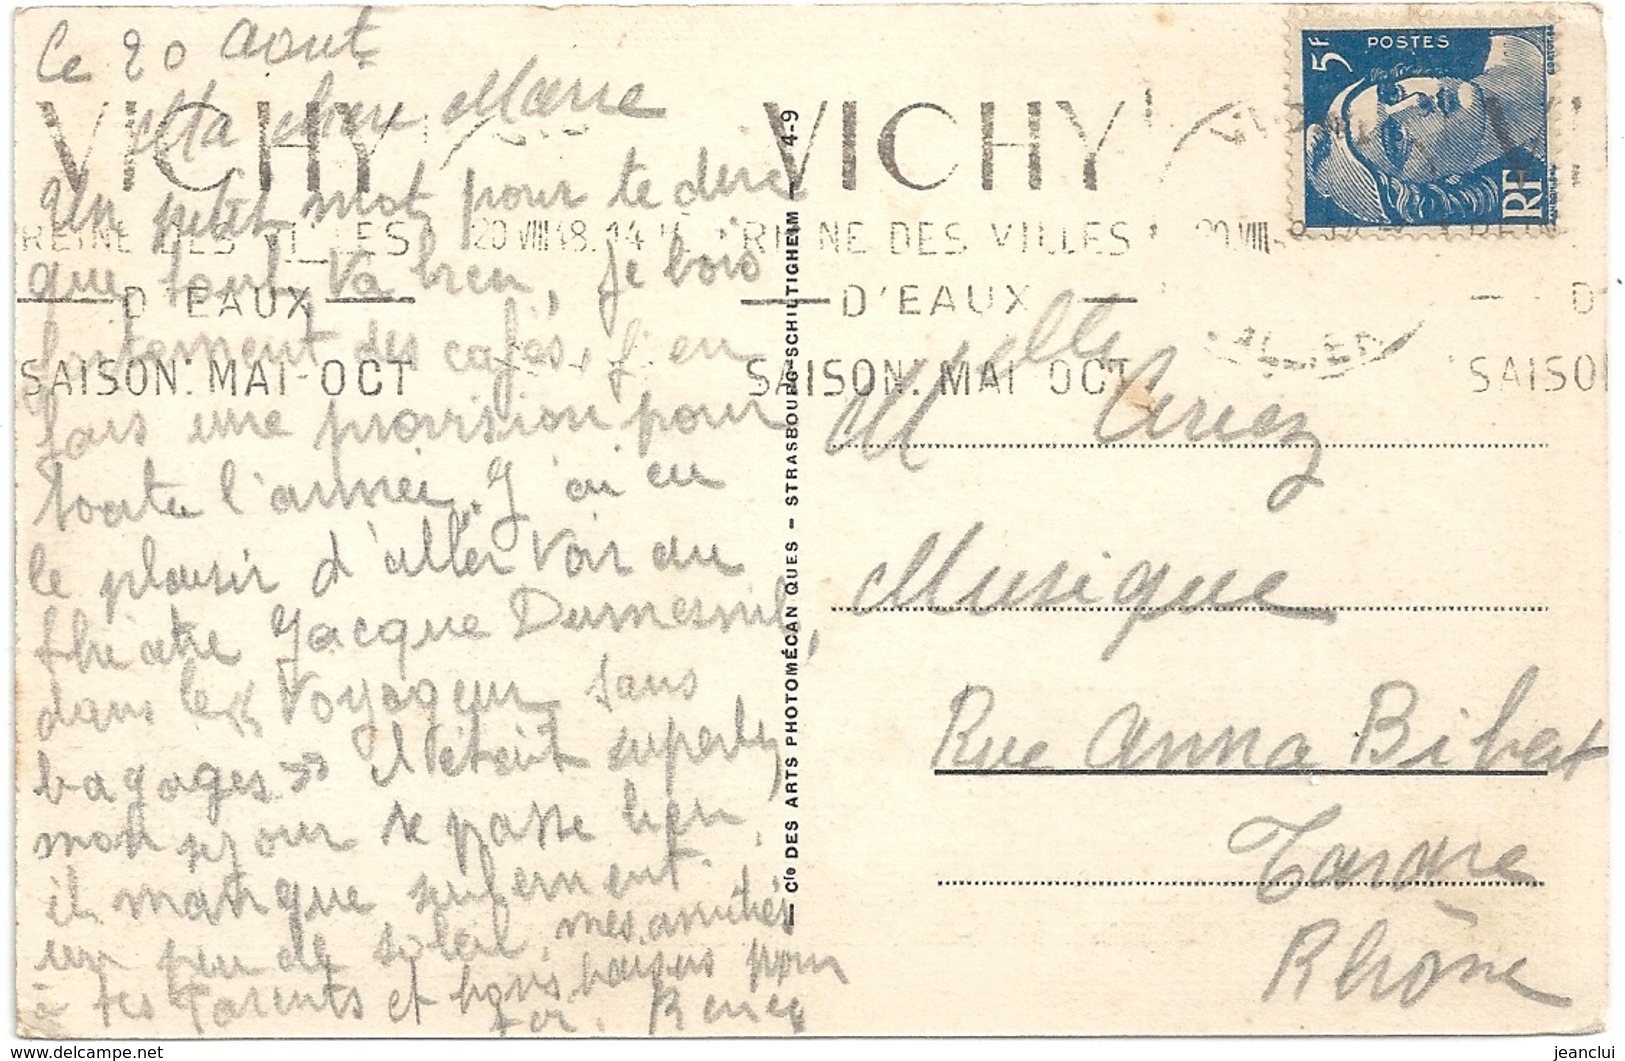 Le 20 Aout
Ma chère Marie
Un petit mot pour te dire
que tout va bien, je bois
fortement des cafés, j'en
fais une provision pour
toute l'année. J'ai eu
le plaisir d'aller voir au
théatre Jacque Dumesnil,
dans le « Voyageur sans
bagages » il était superbe,
mon séjour se passe bien,
il manque seulement
un peu de soleil, mes amitiés
à tes Parents et bons baisers pour
toi. Renée
VICHY
REINE DES VILLES
D'EAUX
SAISON: MAI-OCT
20 VIII 48. 14 H
VICHY
REINE DES VILLES
D'EAUX
SAISON: MAI OCT
20 VIII
VICHY
ALLIER
REINE
D
SAISO
POSTES
5F
RF
Cie DES ARTS PHOTOMÉCANIQUES - STRASBOURG-SCHILTIGHEIM 4-9
Melle
Musique
Rue Anna Bibert
Tarare
Rhône
jeanclui